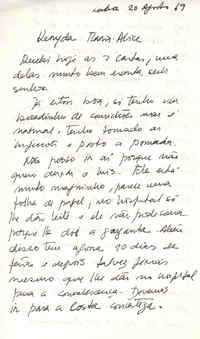 Lisboa 20 Agosto 69
Querida Maria Alice
Recebi hoje as 2 cartas, uma
delas muito bem escrita, sem
Já estou boa, só tenho um
bocadinho de comichões mas é
natural, tenho tomado as
injecções e posto a pomada.
Não posso ir aí porque não
quero deixar o Luís. Ele está
muito magrinho, parece uma
folha de papel, no hospital só
lhe dão leite e ele não pode
porque lhe dói a garganta.
disso tem agora 20 dias de
férias e depois talvez
mesmo que lhe dão no hospital
para a convalescença.
ir para a Costa com certeza.